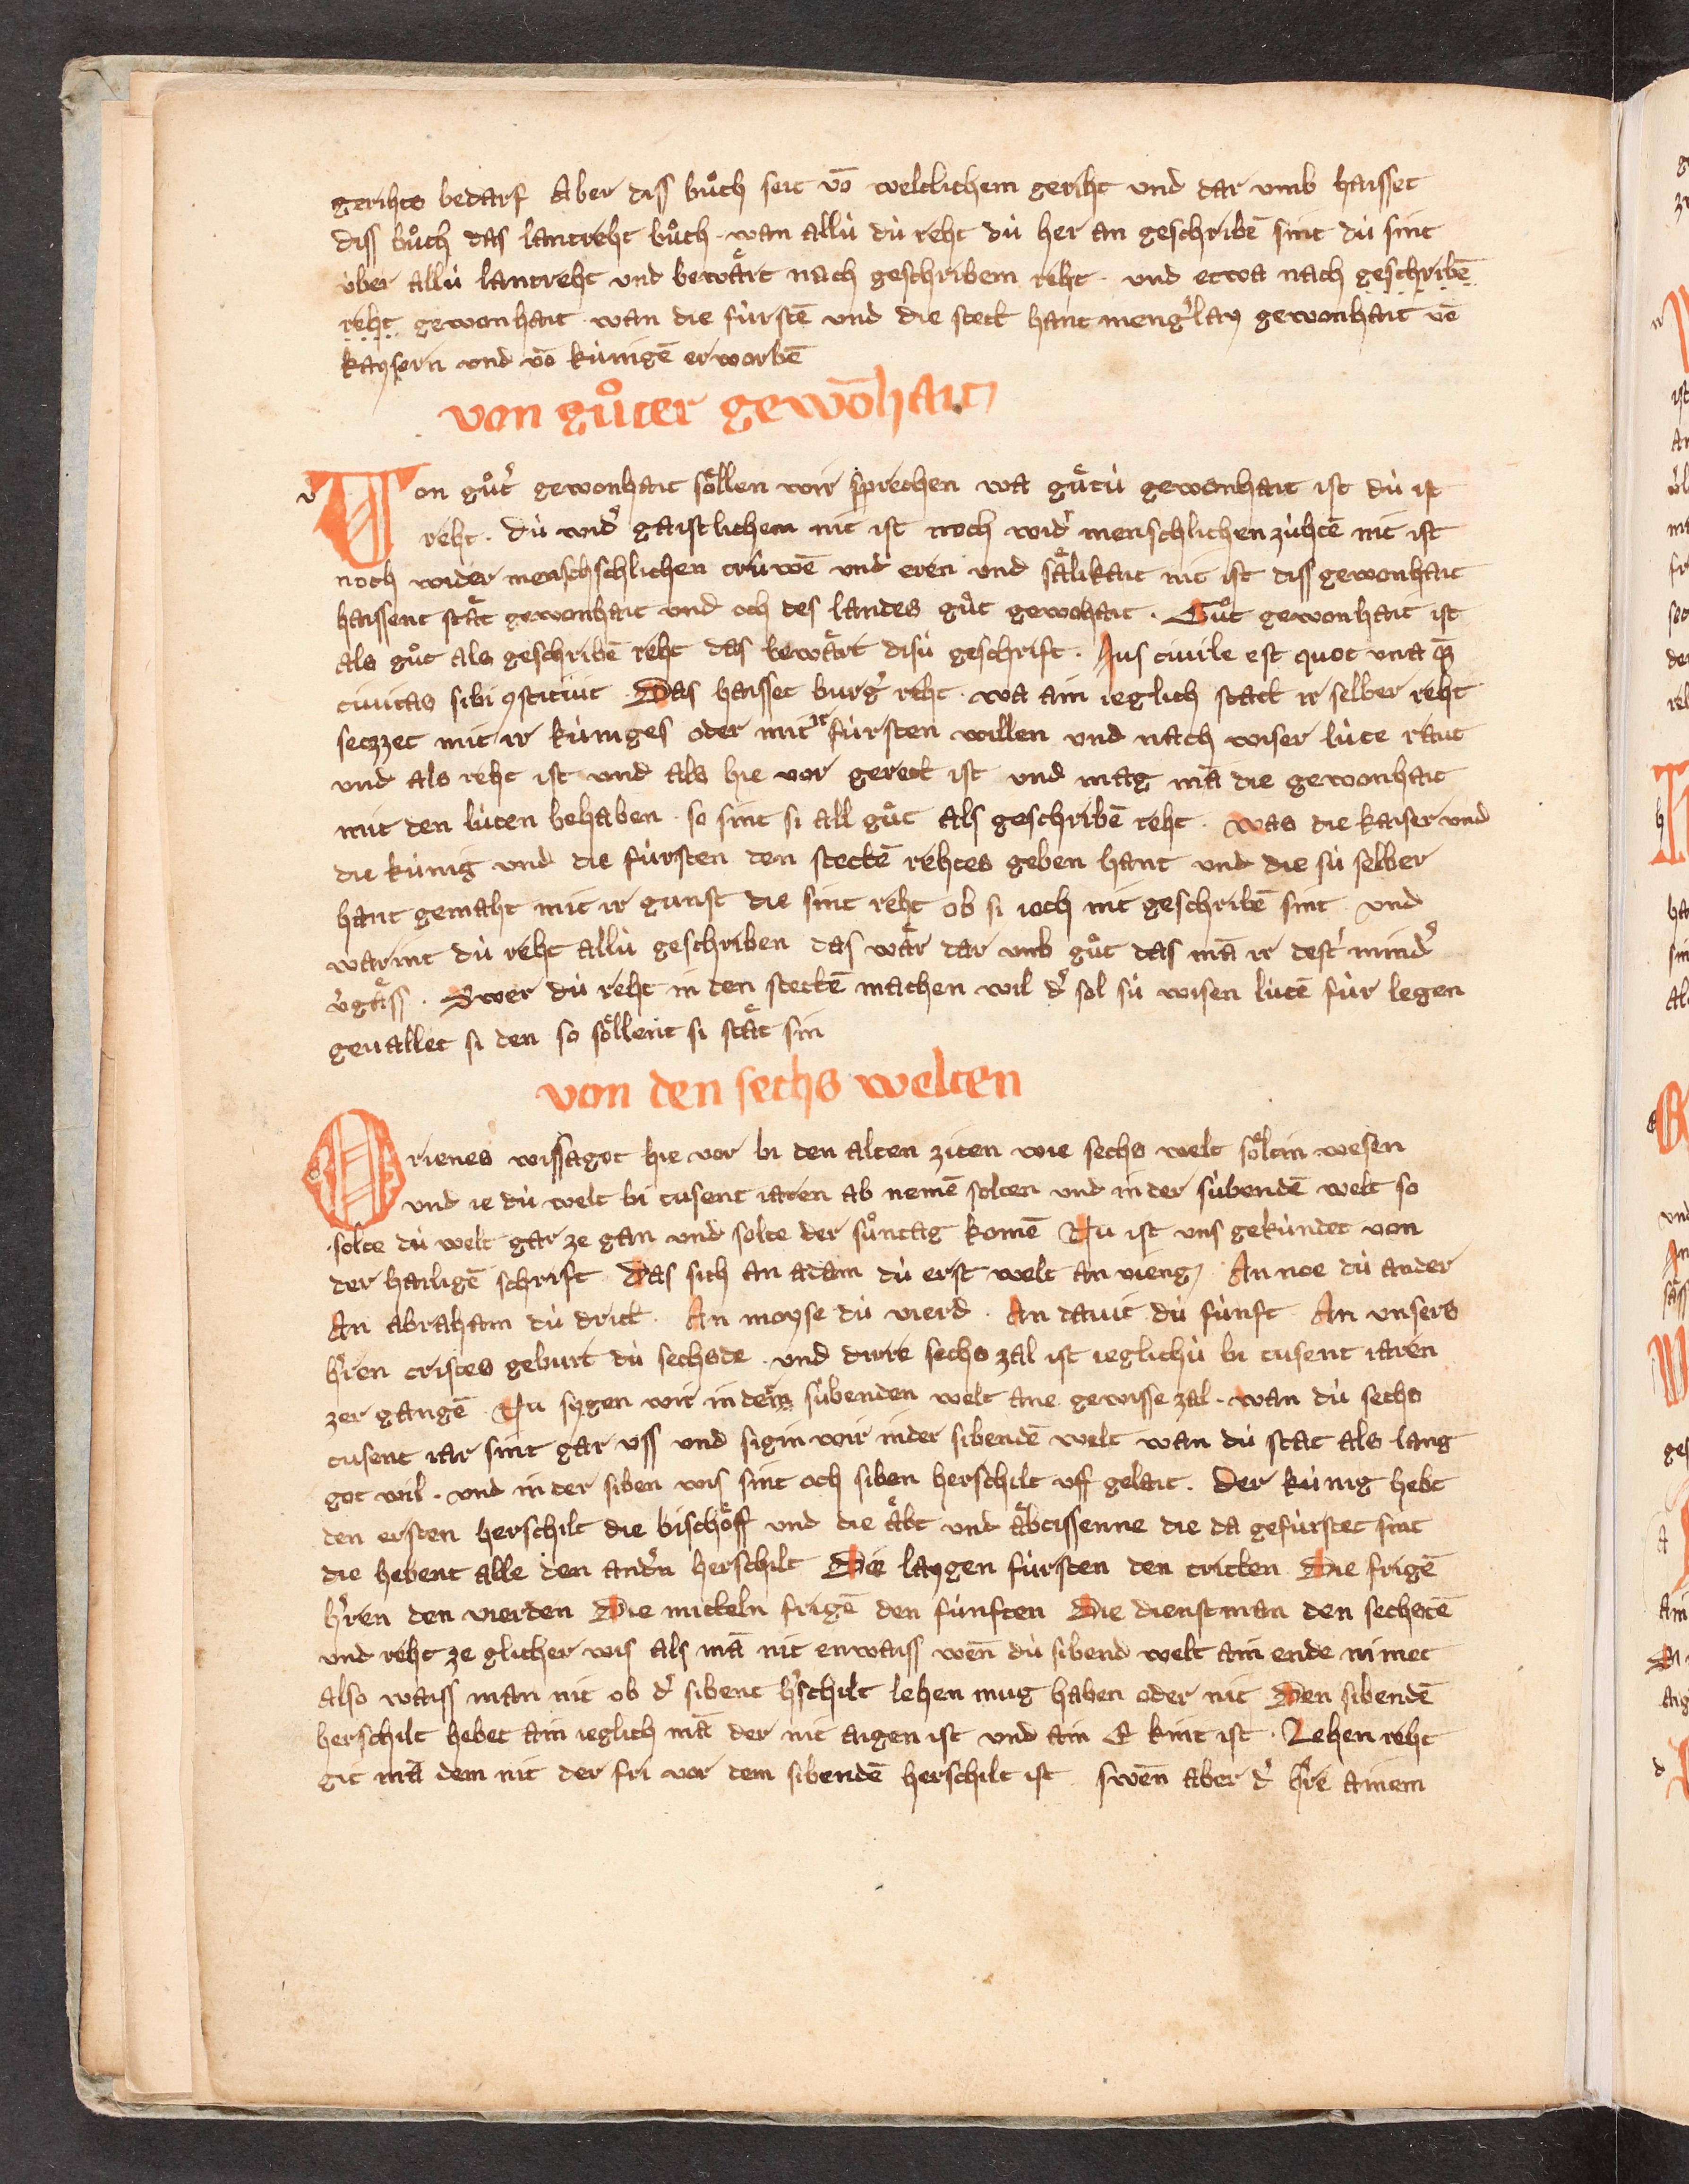 gerihts bedarf Aber diss bůch seit vō weltlichem geriht und dar vmb haisset
diss bůch das lantreht bůch · wan allù dù reht dù her an geschribē sint dù sint
ùber allù lantreht und bewaͤrt nach geschribem reht · und etwa nach geschribē
reht gewonhait wan die fùrstē und die stett hant meng'lay gewonhait vō
kaysern und vō kùnigē erworbē
von gůter gewōhait
v Von gůt' gewonhait soͤllen wir sprechen wa guͤtù gewonhait ist dù ist
reht · dù wid' gaistlichem nit ist noch wid' menschlichen zùhtē nit ist
noch wider menschschlichen trùwē und eren und saͤlikait nit ist diss gewonhait
haissent staͤt gewonhait und och des landes gůt gewohait · Gůt gewonhait ist
als gůt als geschribē reht das bewaͤrt disù geschrift · Jus ciuile est quot vna qȝ
ciuitas sibi ꝯstituit · Das haisset burg' reht · wa ain ieglich statt ir selber reht
seczzet mit ir kùniges oder mit ir fùrsten willen und nach wiser lùte raut
und als reht ist und als hie vor gerett ist und mag mā die gewonhait
mit den lùten behaben · so sint si all gůt als geschribē reht · was die kaiser und
die kùnig und die fùrsten den stettē rehtes geben hant und die sù selber
hant gemaht mit ir gunst die sint reht ob si ioch nit geschribē sint und
warint dù reht allù geschriben das waͤr dar vmb gůt das mā ir dest' mind'
v'gaͤss · Swer dù reht in den stettē machen wil d' sol sù wisen lùtē fùr legen
geuallet si den so soͤllent si staͤt sin
von den sechs welten
o Orienes wissagot hie vor bi den alten ziten wie sechs welt soͤltin wesen
und ie dù welt bi tusent iaren ab nemē solten und in der sùbendē welt so
solte dù welt gar ze gan und solte der sůntag komē Nu ist uns gekùndet von
der hailigē schrift Das sich an adam dù erst welt an vieng An noe dù ander
An abraham dù dritt · An moyse dù vierd · An dauit dù fùnft An vnsers
h'ren cristes geburt dù sechsde · und dirre sechs zal ist ieglichù bi tusent iaren
zer gangē Nu sygen wir in der sùbenden welt ane gewisse zal · wan dù sechs
tusent iar sint gar vss und sigin wir inder sibendē welt wan dù stat als lang
got wil · und in der siben wis sint och siben herschilt uff gelait · Der kùnig hebt
den ersten herschilt die bischoͤff und die aͤbt und aͤbtissenne die da gefùrstet sint
die hebent alle den and'n herschilt Die laygen fùrsten den tritten Die frigē
h'ren den vierden Die mitteln frigē den fùnften Die dienstman den sechstē
und reht ze glicher wis als mā nit enwaiss wēn dù sibend welt ain ende nimet
also waiss man nit ob d' sibent h'schilt lehen mug haben oder nit Den sibendē
herschilt hebet ain ieglich mā der nit aigen ist und ain E kint ist · Lehen reht
git mā dem nit der fri vor dem sibendē herschilt ist swēn aber d' h're ainem